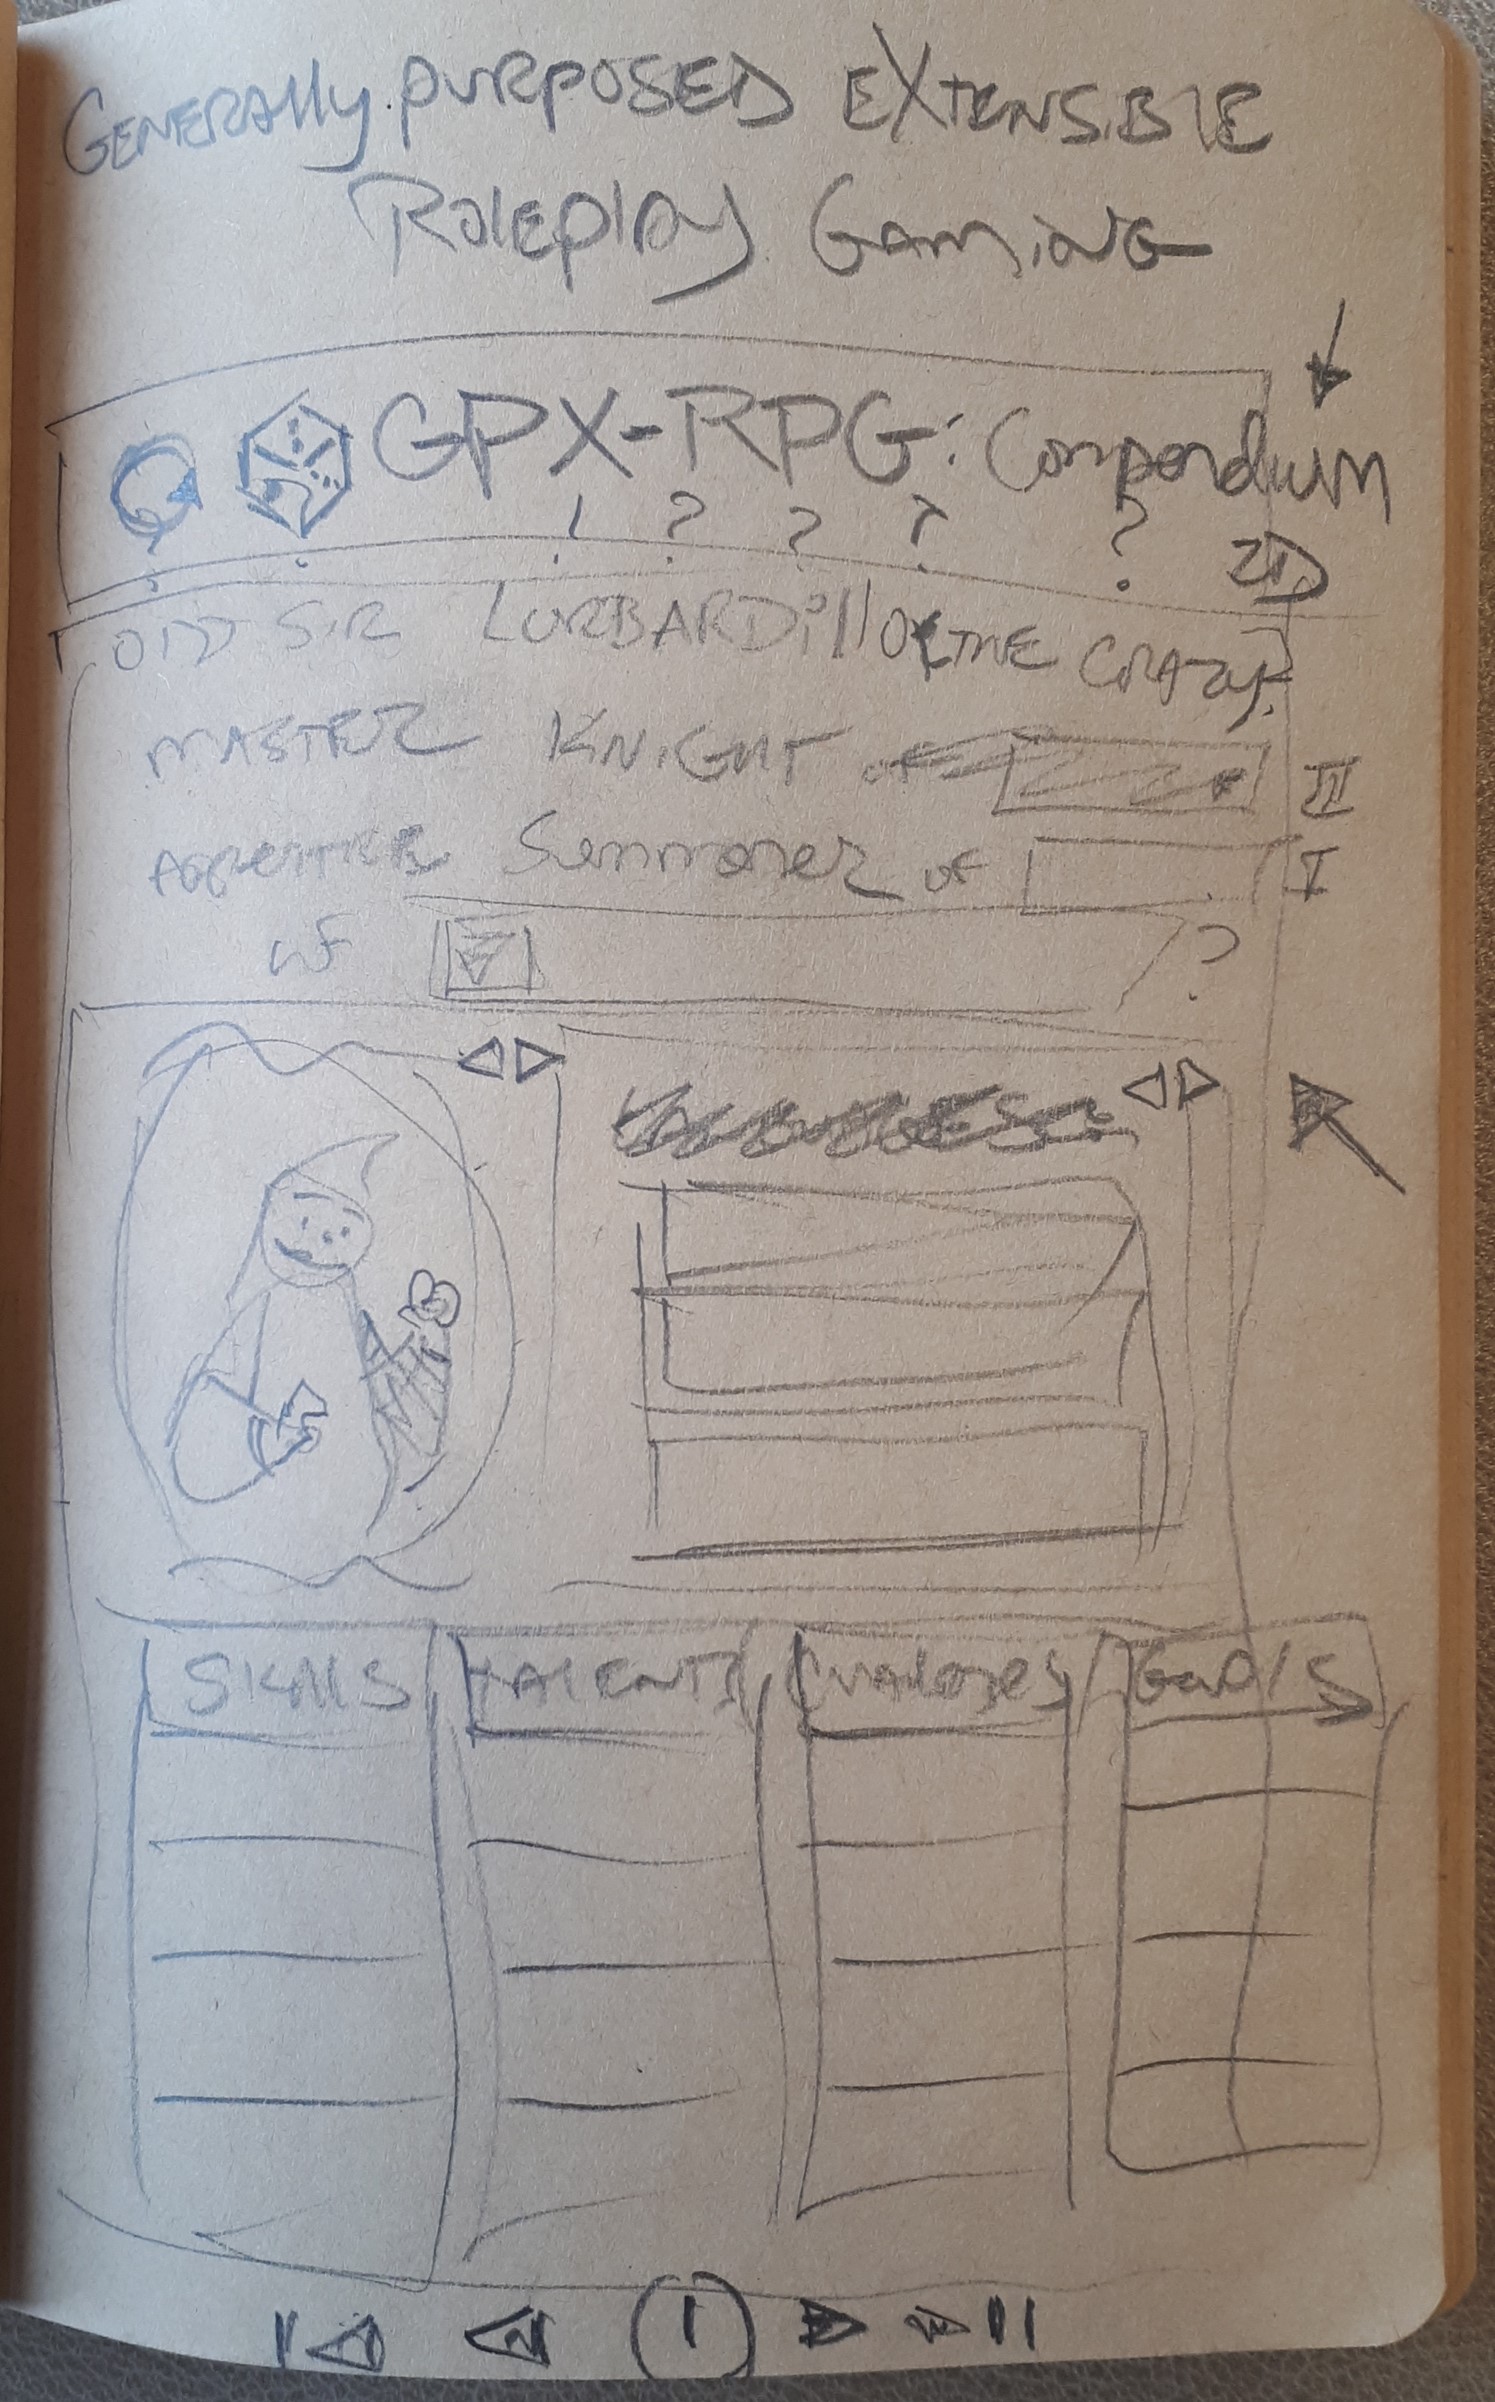 GENERALLY PURPOSED EXTENSIBLE
Roleplay GAMING
GPX-RPG: Compendium
! ? ? ? ?
SIR LORBARDillO THE CRAZY
MASTER KNIGHT OF II
Summoner OF I
OF ?
SKILLS TALENTS GOALS
1